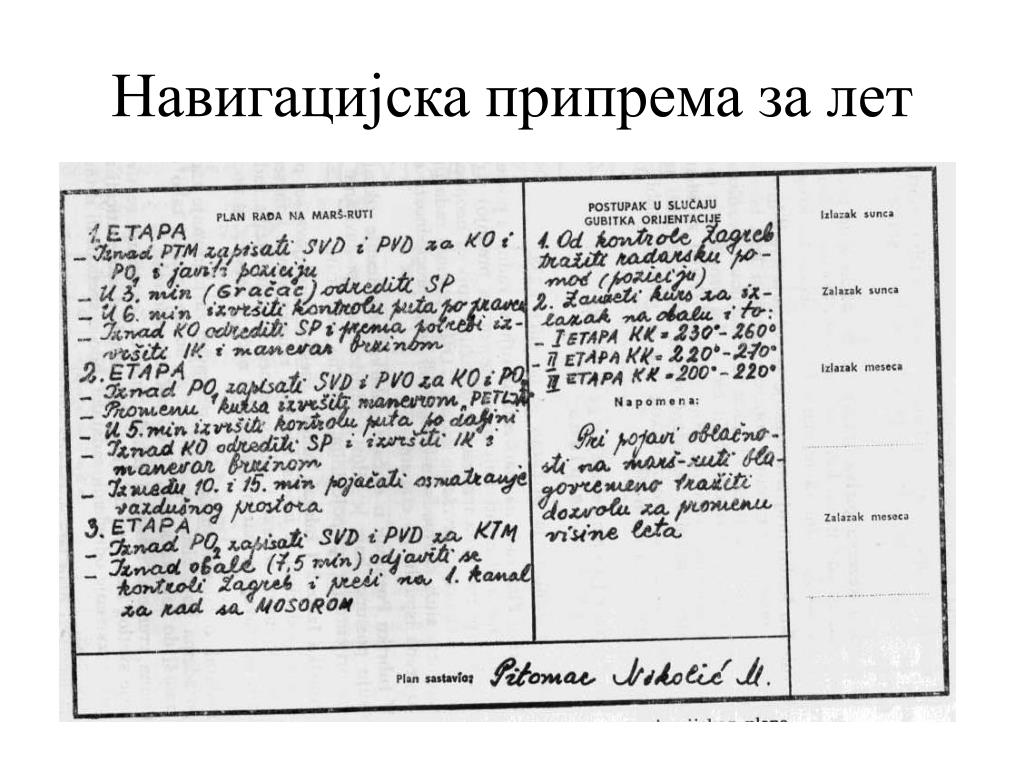 Навигацијска припрема за лет
PLAN RADA NA MARŠ-RUTI
1. ETAPA
- Iznad PTM zapisati SVD i PVD za KO i
PO₁ i javiti poziciju
- U 3. min (Gračac) odrediti SP
- U 6. min izvršiti kontrolu puta po pravcu
- Iznad KO odrediti SP i prema potrebi iz-
vršiti IK i manevar brzinom
2. ETAPA
- Iznad PO₁ zapisati SVD i PVO za KO i PO₂
- Promenu kursa izvršiti manevrom „PETLJA"
- U 5. min izvršiti kontrolu puta po daljini
- Iznad KO odrediti SP i izvršiti IK i
manevar brzinom
- Između 10. i 15. min pojačati osmatranje
vazdušnog prostora
3. ETAPA
- Iznad PO₂ zapisati SVD i PVD za KTM
- Iznad obale (7,5 min) odjaviti se
kontroli Zagreb i preći na 1. kanal
za rad sa MOSOROM
POSTUPAK U SLUČAJU
GUBITKA ORIJENTACIJE
1. Od kontrole Zagreb
tražiti radarsku po-
moć (poziciju)
2. Zauzeti kurs za iz-
lazak na obalu i to:
- I ETAPA KK = 230°-260°
- II ETAPA KK = 220°-270°
- III ETAPA KK = 200°-220°
Napomena:
Pri pojavi oblačno-
sti na marš-ruti bla-
govremeno tražiti
dozvolu za promenu
visine leta
Izlazak sunca
Zalazak sunca
Izlazak meseca
Zalazak meseca
Plan sastavio: Pitomac Nikolić M.